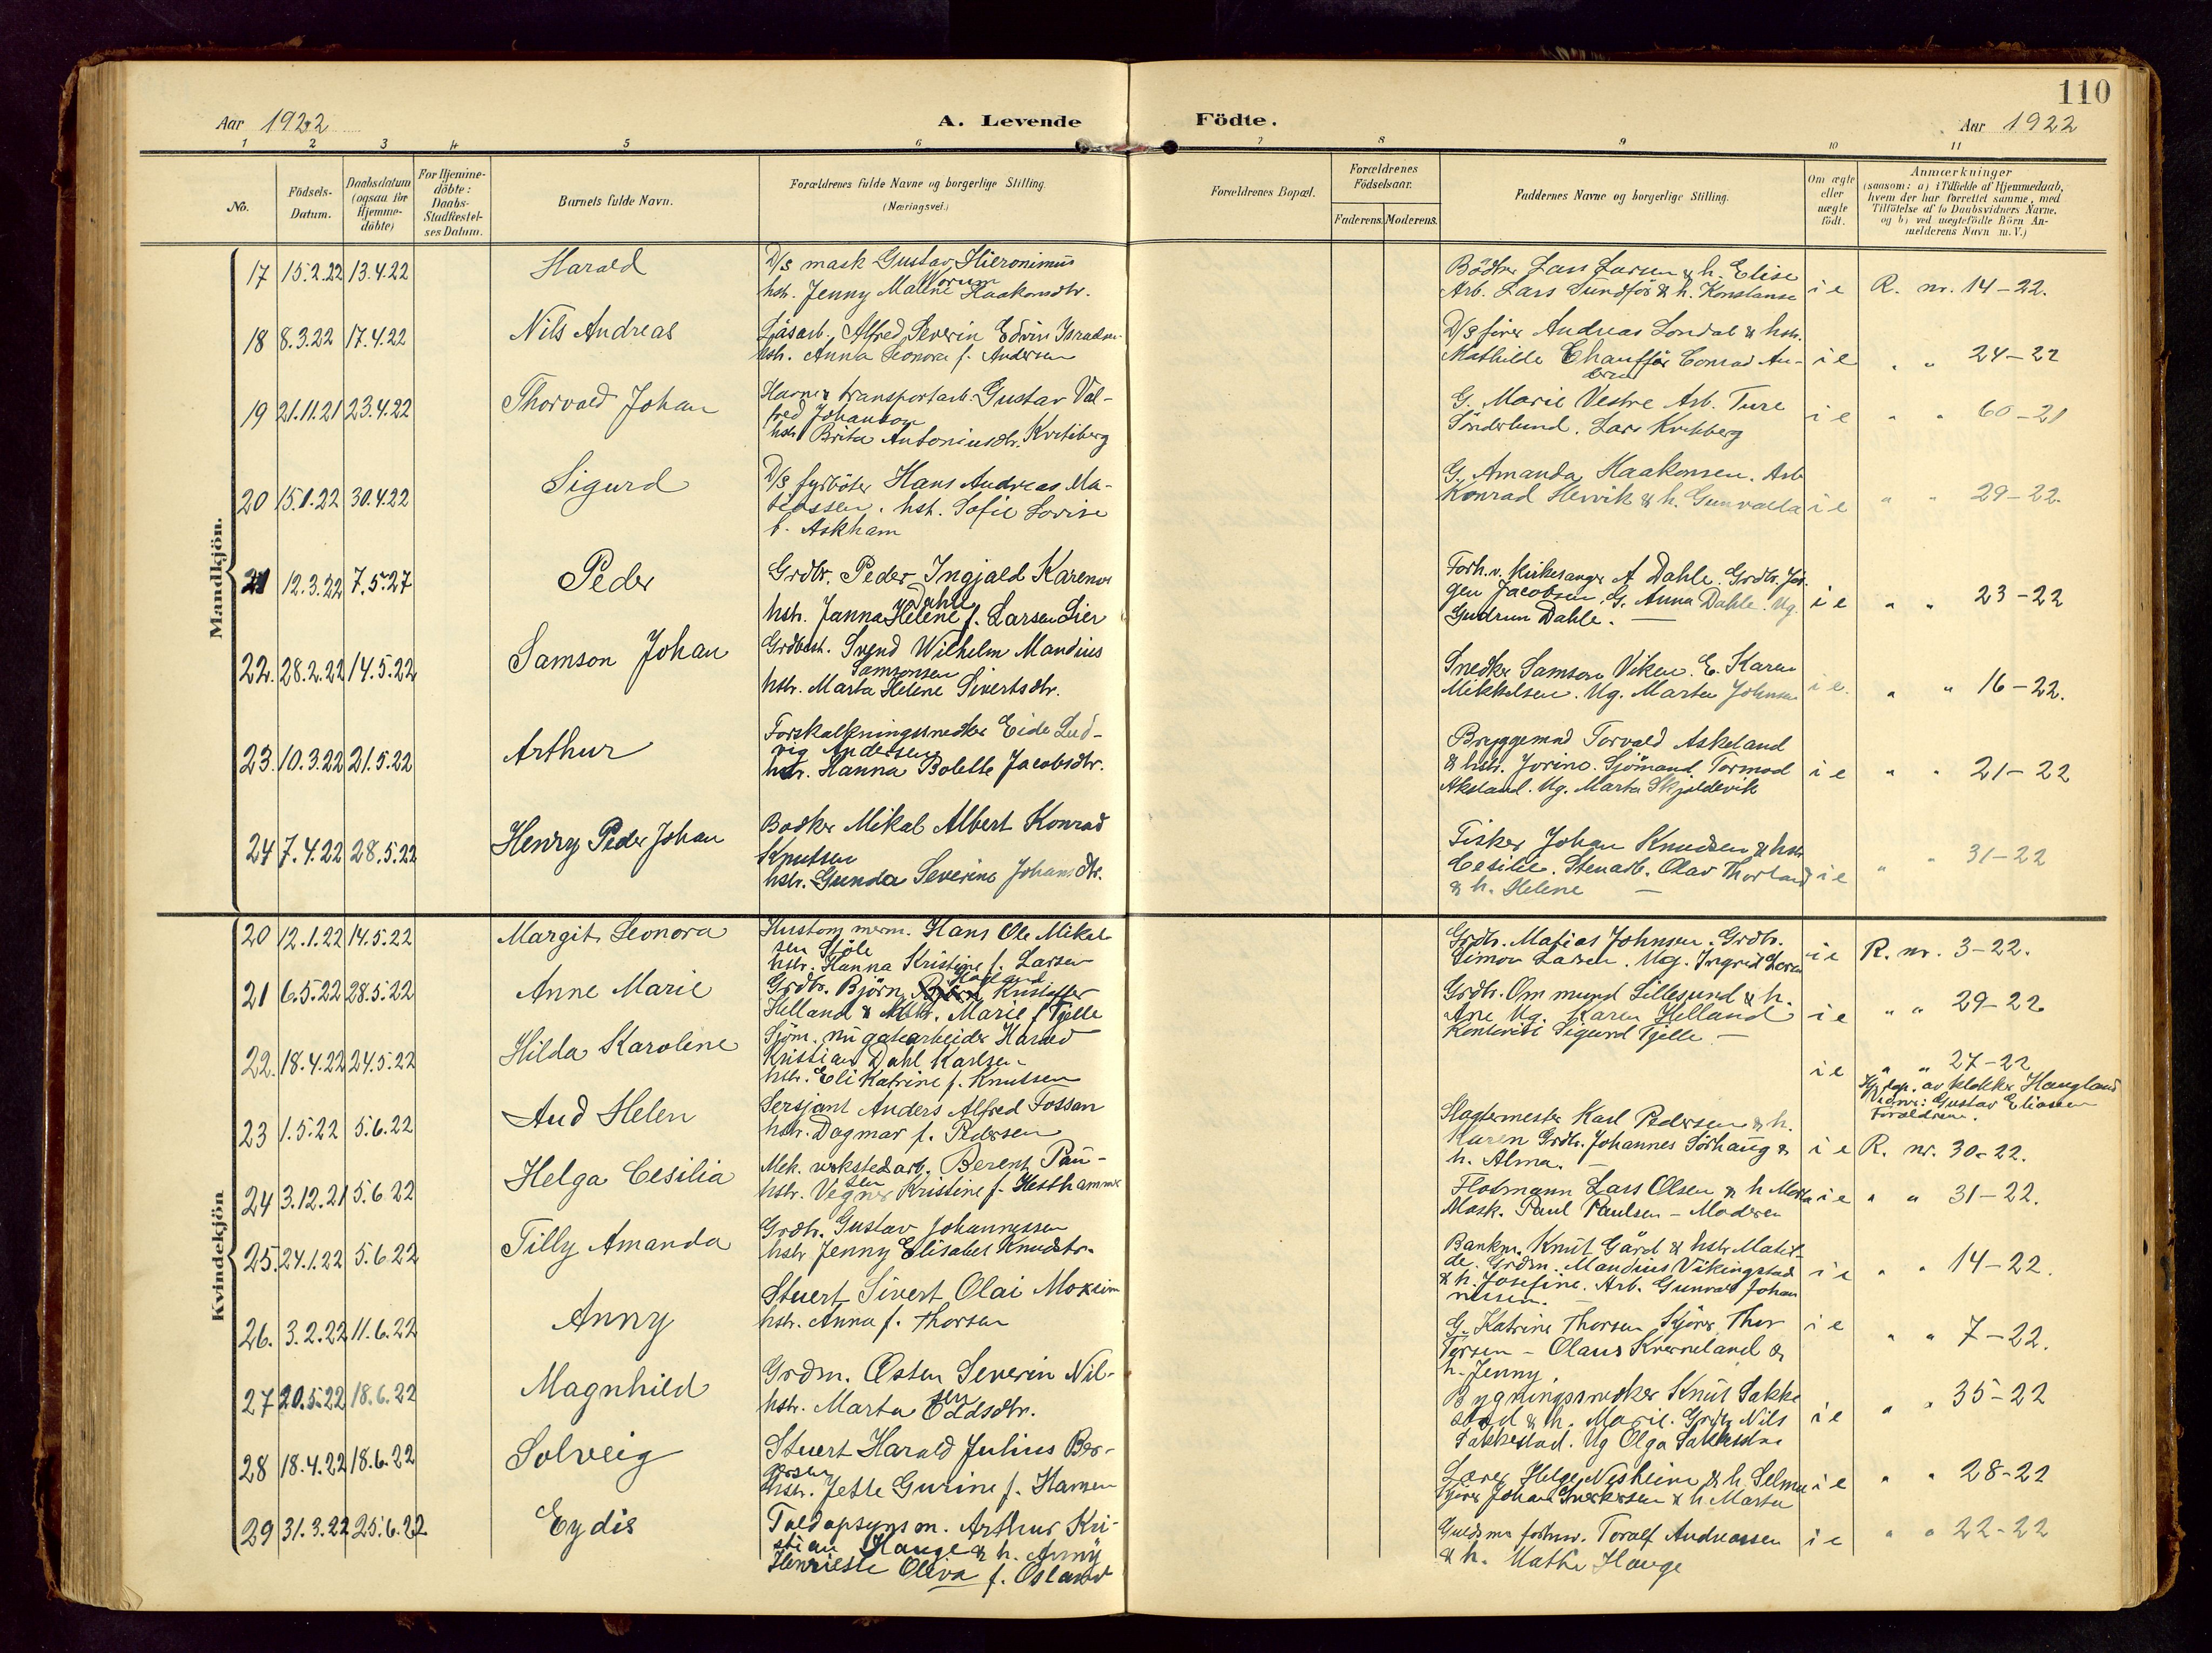 110
Aar 1922
A. Levende Födte.
Aar 1922
1 2 3 4 5 6 7 8 9 10 11
No.
Födsels-Datum.
Daabsdatum (ogsaa for Hjemme-döbte)
For Hjemme-döbte: Daabs-Stadfæstel-ses Datum.
Barnets fulde Navn.
Forældrenes fulde Navne og borgerlige Stilling. (Næringsvei.)
Forældrenes Bopæl.
Forældrenes Födselsaar.
Faderens. Moderens.
Faddernes Navne og borgerlige Stilling.
Om ægte eller uægte födt.
Anmærkninger (saasom: a) i Tilfælde af Hjemmedaab, hvem der har forrettet samme, med Tilföielse af to Daabsvidners Navne, og b) ved uægtefödte Börn An-melderens Navn m. V.)
Mandkjön.
17 15.2.22 13.4.22 Harald
D/s mask Gustav Hieronimus
Worum
hstr. Jenny Malene Haakonsdtr.
Bödker Lars Larsen & h. Elise
Arb. Lars Sundför & h. Konstanse
i e R. nr. 14-22.
18 8.3.22 17.4.22 Nils Andreas
Alfred Severin Edvin Israelsen
hstr. Anna Leonora f. Andersen
D/s förer Andreas Londal & hstr.
Mathilde Chaufför Conrad An-
dersen
i e " " 24-22
19 21.11.21 23.4.22 Thorvald Johan
Havne & transportarb. Gustav Val-
fred Johanson
hstr Brita Antoniusdtr. Kvitiberg
G. Marie Vestre Arb. Ture
Sönderlund. Lars Kvitberg
i e " " 60-21
20 15.1.22 30.4.22 Sigurd
D/s fyrböter Hans Andreas Ma-
tiassen. hst. Sofie Lovise
f. Askham
G. Amanda Haakonsen. Arb
Konrad Hervik & h. Gunvalla
i e " " 29-22.
21 12.3.22 7.5.27 Peder
Grdbr. Peder Ingjald Karenus
Dahle
hstr. Janna Helene f. Larsen Lier
Forh.v. kirkesanger A Dahle. Grdbr. Jör-
gen Jacobsen. G. Anna Dahle. Ug.
Gudrun Dahle. —
i e " " 23-22
22. 28.2.22 14.5.22 Samson Johan
Grdbest. Svend Wilhelm Mandius
Samsonsen
hstr. Marta Helene Sivertsdtr.
Snedker Samson Viken. E. Karen
Mikkelsen. Ug. Marta Johnsen
i e. " " 16-22.
23. 10.3.22 21.5.22 Arthur
Forskallningssnedker Eide Lud-
vig Andersen
hstr. Hanna Bolette Jacobsdtr.
Bryggemnd Torvald Askeland
& hstr. Jorine. Sjömand Tormod
Akeland. Ug. Marta Skjoldevik
i e " " 21-22
24 7.4.22 28.5.22 Henry Peder Johan
Bødker Mikal Albert Konrad
Knutsen
hstr. Gunda Severine Johansdtr.
Fisker Johan Knudsen & hstr
Cesilie. Stenarb. Olav Thorland
& h. Helene —
i e " " 31-22
Kvindekjön
20 12.1.22 14.5.22 Margit Leonora
Hans Ole Mikal-
sen Stöle
hstr. Hanna Kristine f. Larsen
Grdbr. Matias Johnsen. Grdbr.
Simon Larsen. Ug. Ingrid
i e R. nr. 3-22.
21 6.5.22 28.5.22 Anne Marie
Grdbr. Björn Kristoffer
Helland & hstr. Marie f Tjelle
Grdbr. Ommund Lillesund & h.
Ane Ug. Karen Helland
Kontorist Sigurd Tjelle —
i e " " 29-22
22. 18.4.22 24.5.22 Hilda Karoline
Sjöm. nu gatearbeider Harald
Kristian Dahl Karlsen
hstr. Eli Katrine f. Knutsen
i e " " 27-22
Hj. dap. av klokker Haugland
Vidner: Gustav Eliasen
Foreldrene.
23 1.5.22 5.6.22 Aud Helen
Sersjant Anders Alfred Fossan
hstr. Dagmar f. Pedersen
Slagtermester Karl Pedersen & h.
Karen Grdbr. Johannes Sörhaug &
h. Alma. —
i e R. nr. 30-22.
24 3.12.21 5.6 22 Helga Cesilia
Mek. verkstedarb. Berent Paul-
sen
hstr. Vegner Kristine f. Hesthammer
Flotmann Lars Olsen & h Marta
Mask. Paul Paulsen - Moderen
i e " " 31-22.
25. 24.1.22 5.6.22 Tilly Amanda
Grdbr. Gustav Johannessen
hstr Jenny Elisabet Knudsdtr.
Bankm. Knut Gård & hstr Matil-
de. Grdm. Mandius Vikingstad
& h. Josefine. Arb. Gunvald Johan
nessen. —
i e " " 14-22.
26. 3.2.22 11.6.22 Anny
Stuert Sivert Olai Moxeim
hstr. Anna f. Thorsen
G. Katrine Thorsen Skjörer Thor
Torsen - Olaus Kverneland &
h. Jenny
i e " " 7-22.
27 20.5.22 18.6.22 Magnhild
Grdm. Østen Severin Nil-
sen
hstr. Marta Oddsdtr.
Bygningssnedker Knut Sakke
stad & h. Marie. Grdbr Nils
Sakkestad. Ug Olga Sakkestad
i e " " 35-22
28 18.4.22 18.6.22 Solveig
Stuert Harald Julius Ber-
gersen
hstr. Jette Gurine f. Hansen
Lærer Helge Nesheim & h. Selma
Johan Sverkersen & h. Marta
i e " " 28-22
29 31.3.22 25.6.22 Eydis
Toldopsynsm. Arthur Kri-
stian Hauge & h. Anny
Henriette Oliva f. Osland
Guldsm forhnv. Toralf Andreassen
& h. Mathe Hauge
i e " " 22-22